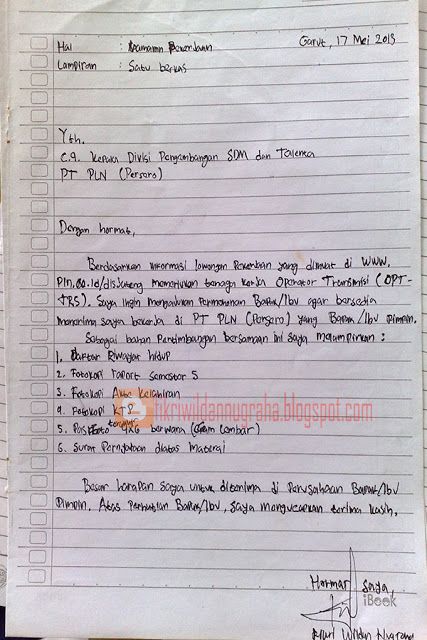 Hal : Lamaran Pekerjaan Garut, 17 Mei 2013
Lampiran : Satu berkas
Yth.
c.q. Kepala Divisi Pengembangan SDM dan Talenta
PT PLN (Persero)
Dengan hormat,
Berdasarkan informasi lowongan Pekerjaan yang dimuat di WWW.
Pln.co.id/disjateng memerlukan tenaga kerja Operator Transmisi (OPT-
TRS). Saya ingin mengajukan Permohonan Bapak/Ibu agar bersedia
menerima saya bekerja di PT PLN (Persero) yang Bapak/Ibu Pimpin.
Sebagai bahan Pertimbangan bersamaan ini Saya melampirkan :
1. Daftar Riwayat hidup
2. Fotokopi raport semester 5
3. Fotokopi Akte Kelahiran
4. Fotokopi KTP
hkriwildannugraha.blogspot.com
5. Pas foto terbaru 4x6 berwarna (enam Lembar)
6. Surat Pernyataan diatas Materai
Besar harapan saya untuk diterima di Perusahaan Bapak/Ibu
Pimpin. Atas Perhatian Bapak/Ibu, saya mengucapkan terima kasih.
Hormat saya,
iBook
Wildan Nugraha